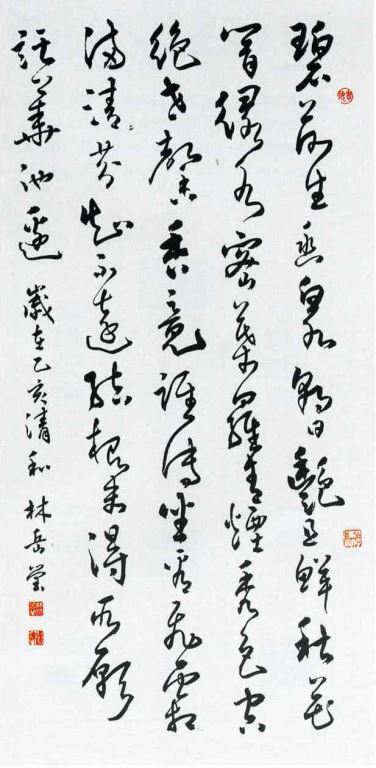 碧荷生幽泉朝日豔且鮮秋花
冒綠水密葉羅青煙秀色空
絕世馨香竟誰傳坐看飛霜
滿清芬不結根未得所願
託華池邊 歲在乙亥清和 林岳瑩